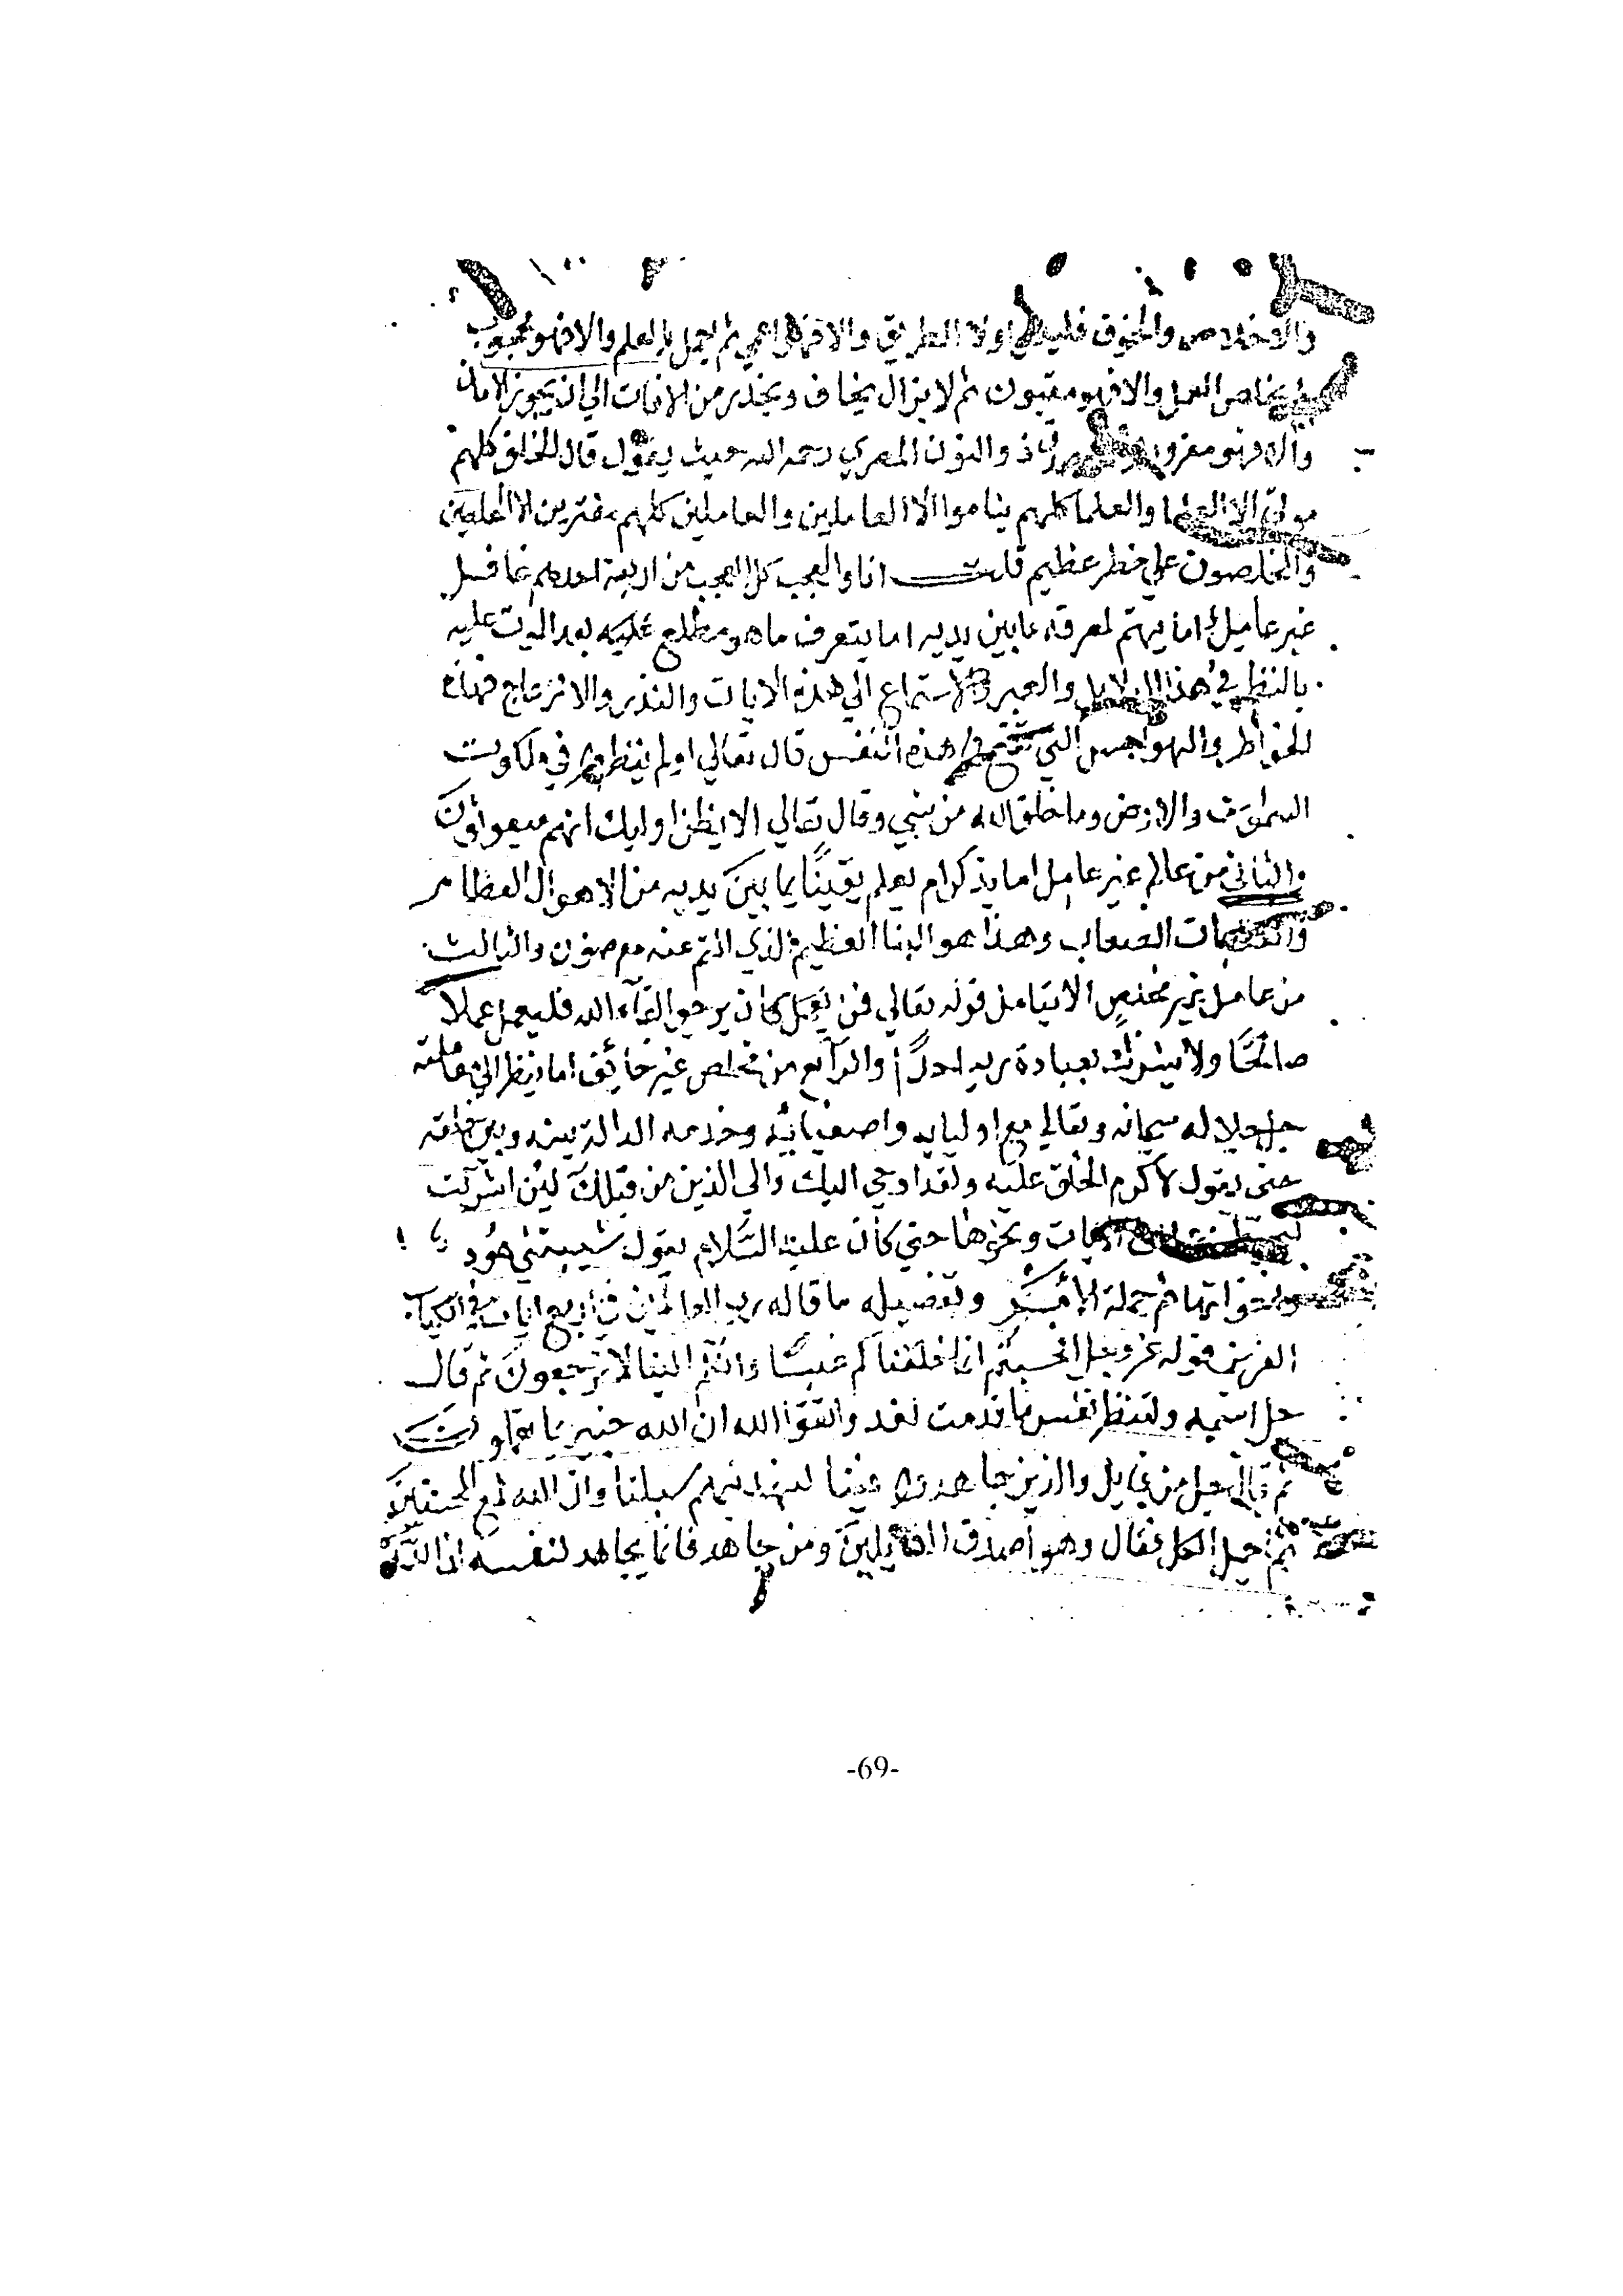 والاخلاص والخوف فليعلم اولا الطريق والا فهو اعمي ثم يعمل بالعلم والا فهو محجوب
ثم يخلص العمل والا فهو مغبون ثم لا يزال يخاف ويحذر من الافات الي ان يجوز الامان
والا فهو مغرور ذو النون المصري رحمه الله حيث يقول قال الخلق كلهم
موتي الا العلما والعلما كلهم نياموا الا العاملين والعاملين كلهم مغترين الا المخلصين
والمخلصون علي خطر عظيم قلت انا والعجب كل العجب من اربعة احدهم غافل
غير عامل اما يهتم لمعرفة ما بين يديه اما يتعرف ما هو مطلع عليه بعد الموت عليه
بالنظر في هذا الدلايل والعبر والاستماع الي هذه الايات والنذر والانزعاج
للخواطر والهواجس التي في هذه النفس قال تعالي اولم ينظروا في ملكوت
السموت والارض وما خلق الله من شي وقال تعالي الا يظن اوليك انهم مبعوثون
والثاني من عالم غير عامل اما يذكر ام يعلم يقينًا بما بين يديه من الاهوال العظام
والعقبات الصعاب وهذا هو النبا العظيم الذي انتم عنه معرضون والثالث
من عامل غير مخلص الا يتامل قوله تعالي فمن كان يرجوا لقاء الله فليعمل عملا
صالحًا ولا يشرك بعبادة ربه احدًا والرابع من مخلص غير خائف اما ينظر الي معاملته
جل جلاله سبحانه وتعالي مع اوليايه واصفيائه وخدمه الدالة بينه وبين خلقه
حتى يقول لاكرم الخلق عليه ولقد اوحي اليك والى الذين من قبلك لئن اشركت
ليحبطن الايات ونحوها حتي كان عليه السلام يقول شيبتني هود
واخواتها ثم جملة الامر وتفصيله ما قاله رب العالمين في اربع ايات في الكتاب
العزيز قوله عز وجل افحسبتم انما خلقناكم عبثًا وانكم الينا لا ترجعون ثم قال
جل اسمه ولتنظر نفس ما قدمت لغد واتقوا الله ان الله خبير بما تعملون
ثم قال جل من قايل والذين جاهدوا فينا لنهدينهم سبلنا وان الله لمع المحسنين
ثم اجمل الكل فقال وهو اصدق القايلين ومن جاهد فانما يجاهد لنفسه ان الله
-69-